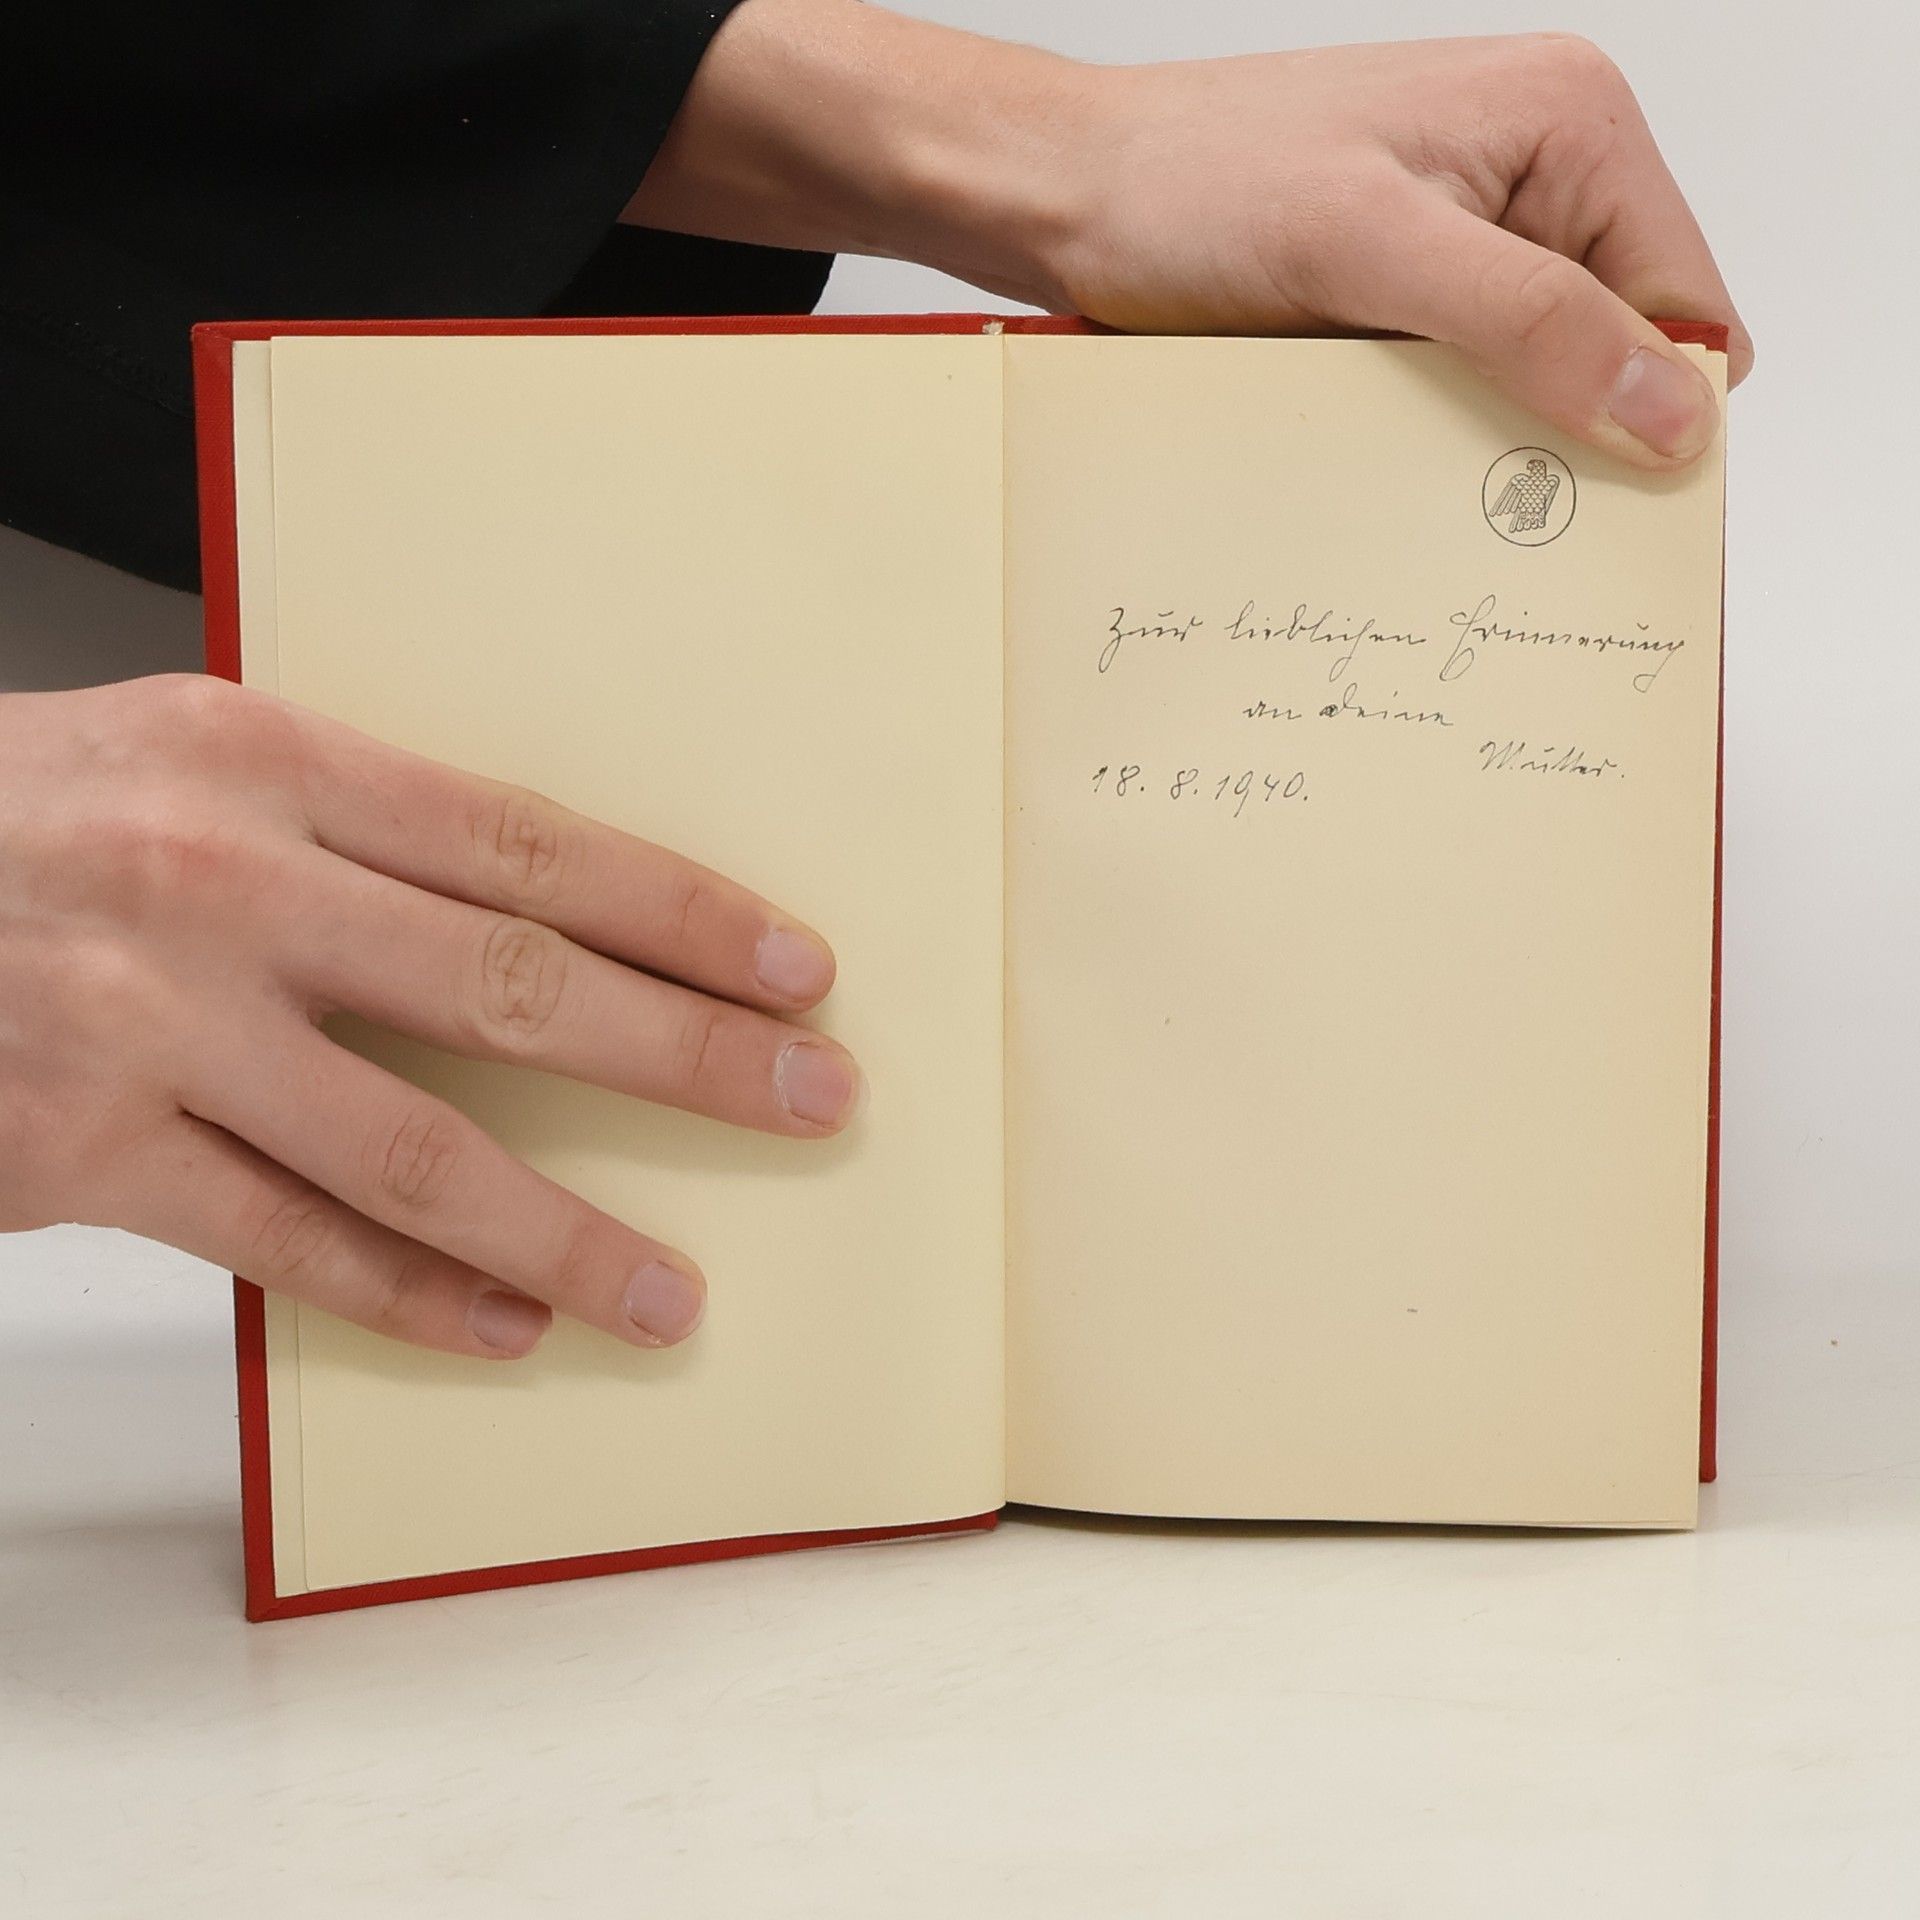 Zur lieblichen Erinnerung
an Deine
Mutter.
18. 8. 1940.